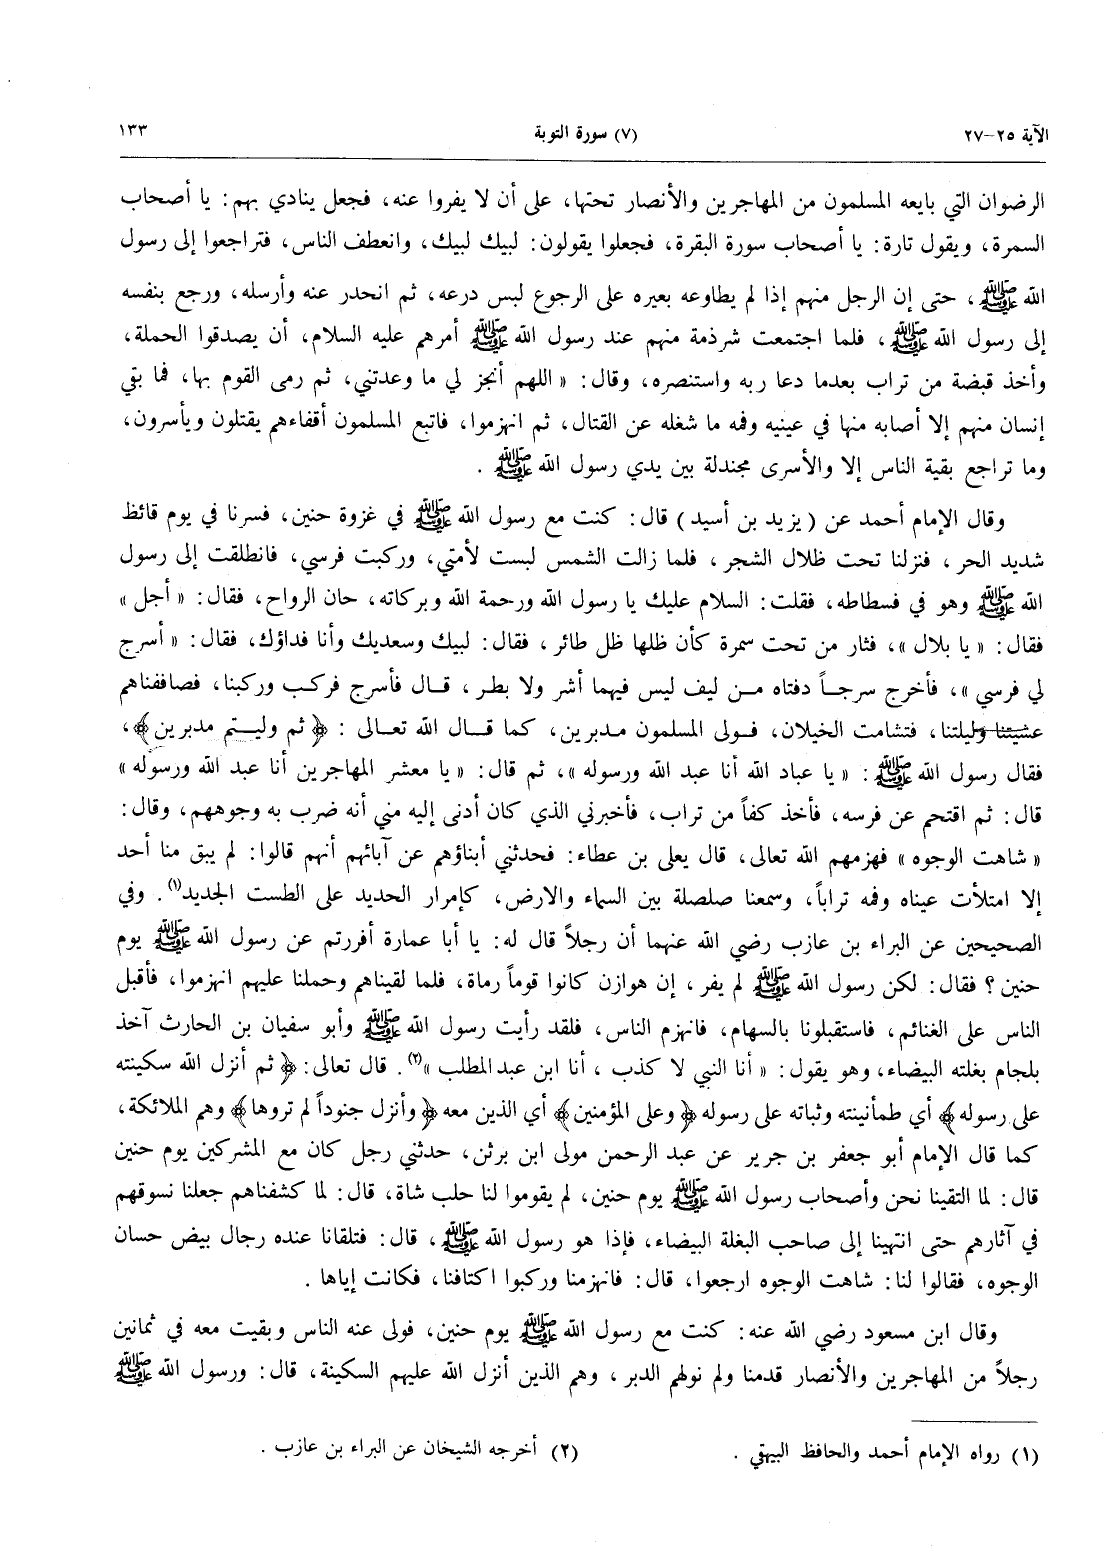 الآية ٢٥-٢٧ (٧) سورة التوبة ١٣٣
الرضوان التي بايعه المسلمون من المهاجرين والأنصار تحتها، على أن لا يفروا عنه، فجعل ينادي بهم: يا أصحاب
السمرة، ويقول تارة: يا أصحاب سورة البقرة، فجعلوا يقولون: لبيك لبيك، وانعطف الناس، فتراجعوا إلى رسول
الله ﷺ، حتى إن الرجل منهم إذا لم يطاوعه بعيره على الرجوع لبس درعه، ثم انحدر عنه وأرسله، ورجع بنفسه
إلى رسول الله ﷺ، فلما اجتمعت شرذمة منهم عند رسول الله ﷺ أمرهم عليه السلام، أن يصدقوا الحملة،
وأخذ قبضة من تراب بعدما دعا ربه واستنصره، وقال: « اللهم أنجز لي ما وعدتني، ثم رمى القوم بها، فما بقي
إنسان منهم إلا أصابه منها في عينيه وفمه ما شغله عن القتال، ثم انهزموا، فاتبع المسلمون أقفاءهم يقتلون ويأسرون،
وما تراجع بقية الناس إلا والأسرى مجندلة بين يدي رسول الله ﷺ .
وقال الإمام أحمد عن ( يزيد بن أسيد ) قال: كنت مع رسول الله ﷺ في غزوة حنين، فسرنا في يوم قائظ
شديد الحر، فنزلنا تحت ظلال الشجر، فلما زالت الشمس لبست لأمتي، وركبت فرسي، فانطلقت إلى رسول
الله ﷺ وهو في فسطاطه، فقلت: السلام عليك يا رسول الله ورحمة الله وبركاته، حان الرواح، فقال: « أجل »
فقال: « يا بلال »، فثار من تحت سمرة كأن ظلها ظل طائر، فقال: لبيك وسعديك وأنا فداؤك، فقال: « أسرج
لي فرسي »، فأخرج سرجاً دفتاه من ليف ليس فيهما أشر ولا بطر، قال فأسرج فركب وركبنا، فصاففناهم
عشيتنا وليلتنا، فتشامت الخيلان، فولى المسلمون مدبرين، كما قال الله تعالى : ﴿ ثم وليتم مدبرين ﴾،
فقال رسول الله ﷺ: « يا عباد الله أنا عبد الله ورسوله »، ثم قال: « يا معشر المهاجرين أنا عبد الله ورسوله »
قال: ثم اقتحم عن فرسه، فأخذ كفاً من تراب، فأخبرني الذي كان أدنى إليه مني أنه ضرب به وجوههم، وقال:
« شاهت الوجوه » فهزمهم الله تعالى، قال يعلى بن عطاء: فحدثني أبناؤهم عن آبائهم أنهم قالوا: لم يبق منا أحد
إلا امتلأت عيناه وفمه تراباً، وسمعنا صلصلة بين السماء والارض، كإمرار الحديد على الطست الجديد(١). وفي
الصحيحين عن البراء بن عازب رضي الله عنهما أن رجلاً قال له: يا أبا عمارة أفررتم عن رسول الله ﷺ يوم
حنين؟ فقال: لكن رسول الله ﷺ لم يفر، إن هوازن كانوا قوماً رماة، فلما لقيناهم وحملنا عليهم انهزموا، فأقبل
الناس على الغنائم، فاستقبلونا بالسهام، فانهزم الناس، فلقد رأيت رسول الله ﷺ وأبو سفيان بن الحارث آخذ
بلجام بغلته البيضاء، وهو يقول: « أنا النبي لا كذب ، أنا ابن عبد المطلب »(٢). قال تعالى: ﴿ ثم أنزل الله سكينته
على رسوله ﴾ أي طمأنينته وثباته على رسوله ﴿ وعلى المؤمنين ﴾ أي الذين معه ﴿ وأنزل جنوداً لم تروها ﴾ وهم الملائكة،
كما قال الإمام أبو جعفر بن جرير عن عبد الرحمن مولى ابن برثن، حدثني رجل كان مع المشركين يوم حنين
قال: لما التقينا نحن وأصحاب رسول الله ﷺ يوم حنين، لم يقوموا لنا حلب شاة، قال: لما كشفناهم جعلنا نسوقهم
في آثارهم حتى انتهينا إلى صاحب البغلة البيضاء، فإذا هو رسول الله ﷺ، قال: فتلقانا عنده رجال بيض حسان
الوجوه، فقالوا لنا: شاهت الوجوه ارجعوا، قال: فانهزمنا وركبوا اكتافنا، فكانت إياها .
وقال ابن مسعود رضي الله عنه: كنت مع رسول الله ﷺ يوم حنين، فولى عنه الناس وبقيت معه في ثمانين
رجلاً من المهاجرين والأنصار قدمنا ولم نولهم الدبر، وهم الذين أنزل الله عليهم السكينة، قال: ورسول الله ﷺ
(١) رواه الإمام أحمد والحافظ البيهقي . (٢) أخرجه الشيخان عن البراء بن عازب .